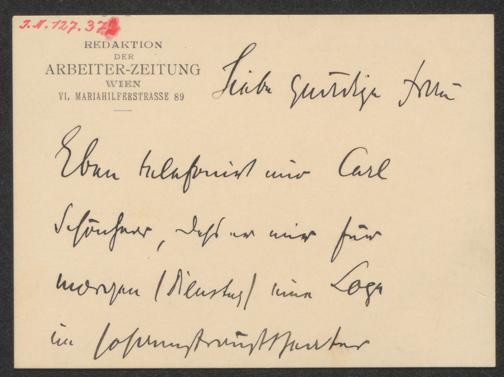 J.N. 127.372
REDAKTION
DER
ARBEITER-ZEITUNG
WIEN
VI, MARIAHILFERSTRASSE 89
Liebe gnädige Frau
Eben telefoniert mir Carl
Schönherr, daß er mir für
morgen (Dienstag) eine Loge
im Johannstraußtheater